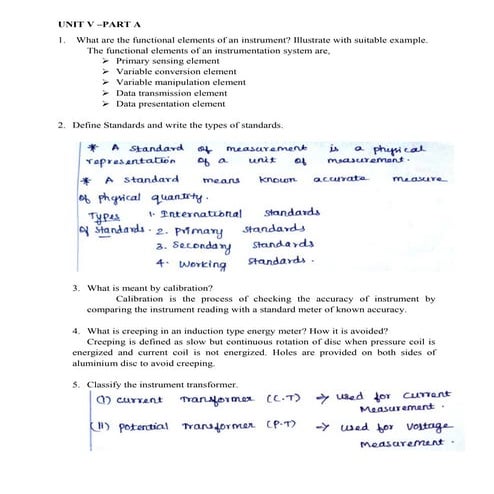 UNIT V –PART A
1. What are the functional elements of an instrument? Illustrate with suitable example.
The functional elements of an instrumentation system are,
➢ Primary sensing element
➢ Variable conversion element
➢ Variable manipulation element
➢ Data transmission element
➢ Data presentation element
2. Define Standards and write the types of standards.
* A Standard of measurement is a physical
representation of a unit of measurement.
* A Standard means known accurate measure
of physical quantity.
Types 1. International Standards
of Standards. 2. Primary Standards
3. Secondary Standards
4. Working Standards.
3. What is meant by calibration?
Calibration is the process of checking the accuracy of instrument by
comparing the instrument reading with a standard meter of known accuracy.
4. What is creeping in an induction type energy meter? How it is avoided?
Creeping is defined as slow but continuous rotation of disc when pressure coil is
energized and current coil is not energized. Holes are provided on both sides of
aluminium disc to avoid creeping.
5. Classify the instrument transformer.
(I) current Transformer (C.T) → used for current
Measurement.
(II) Potential Transformer (P.T) → used for voltage
Measurement.